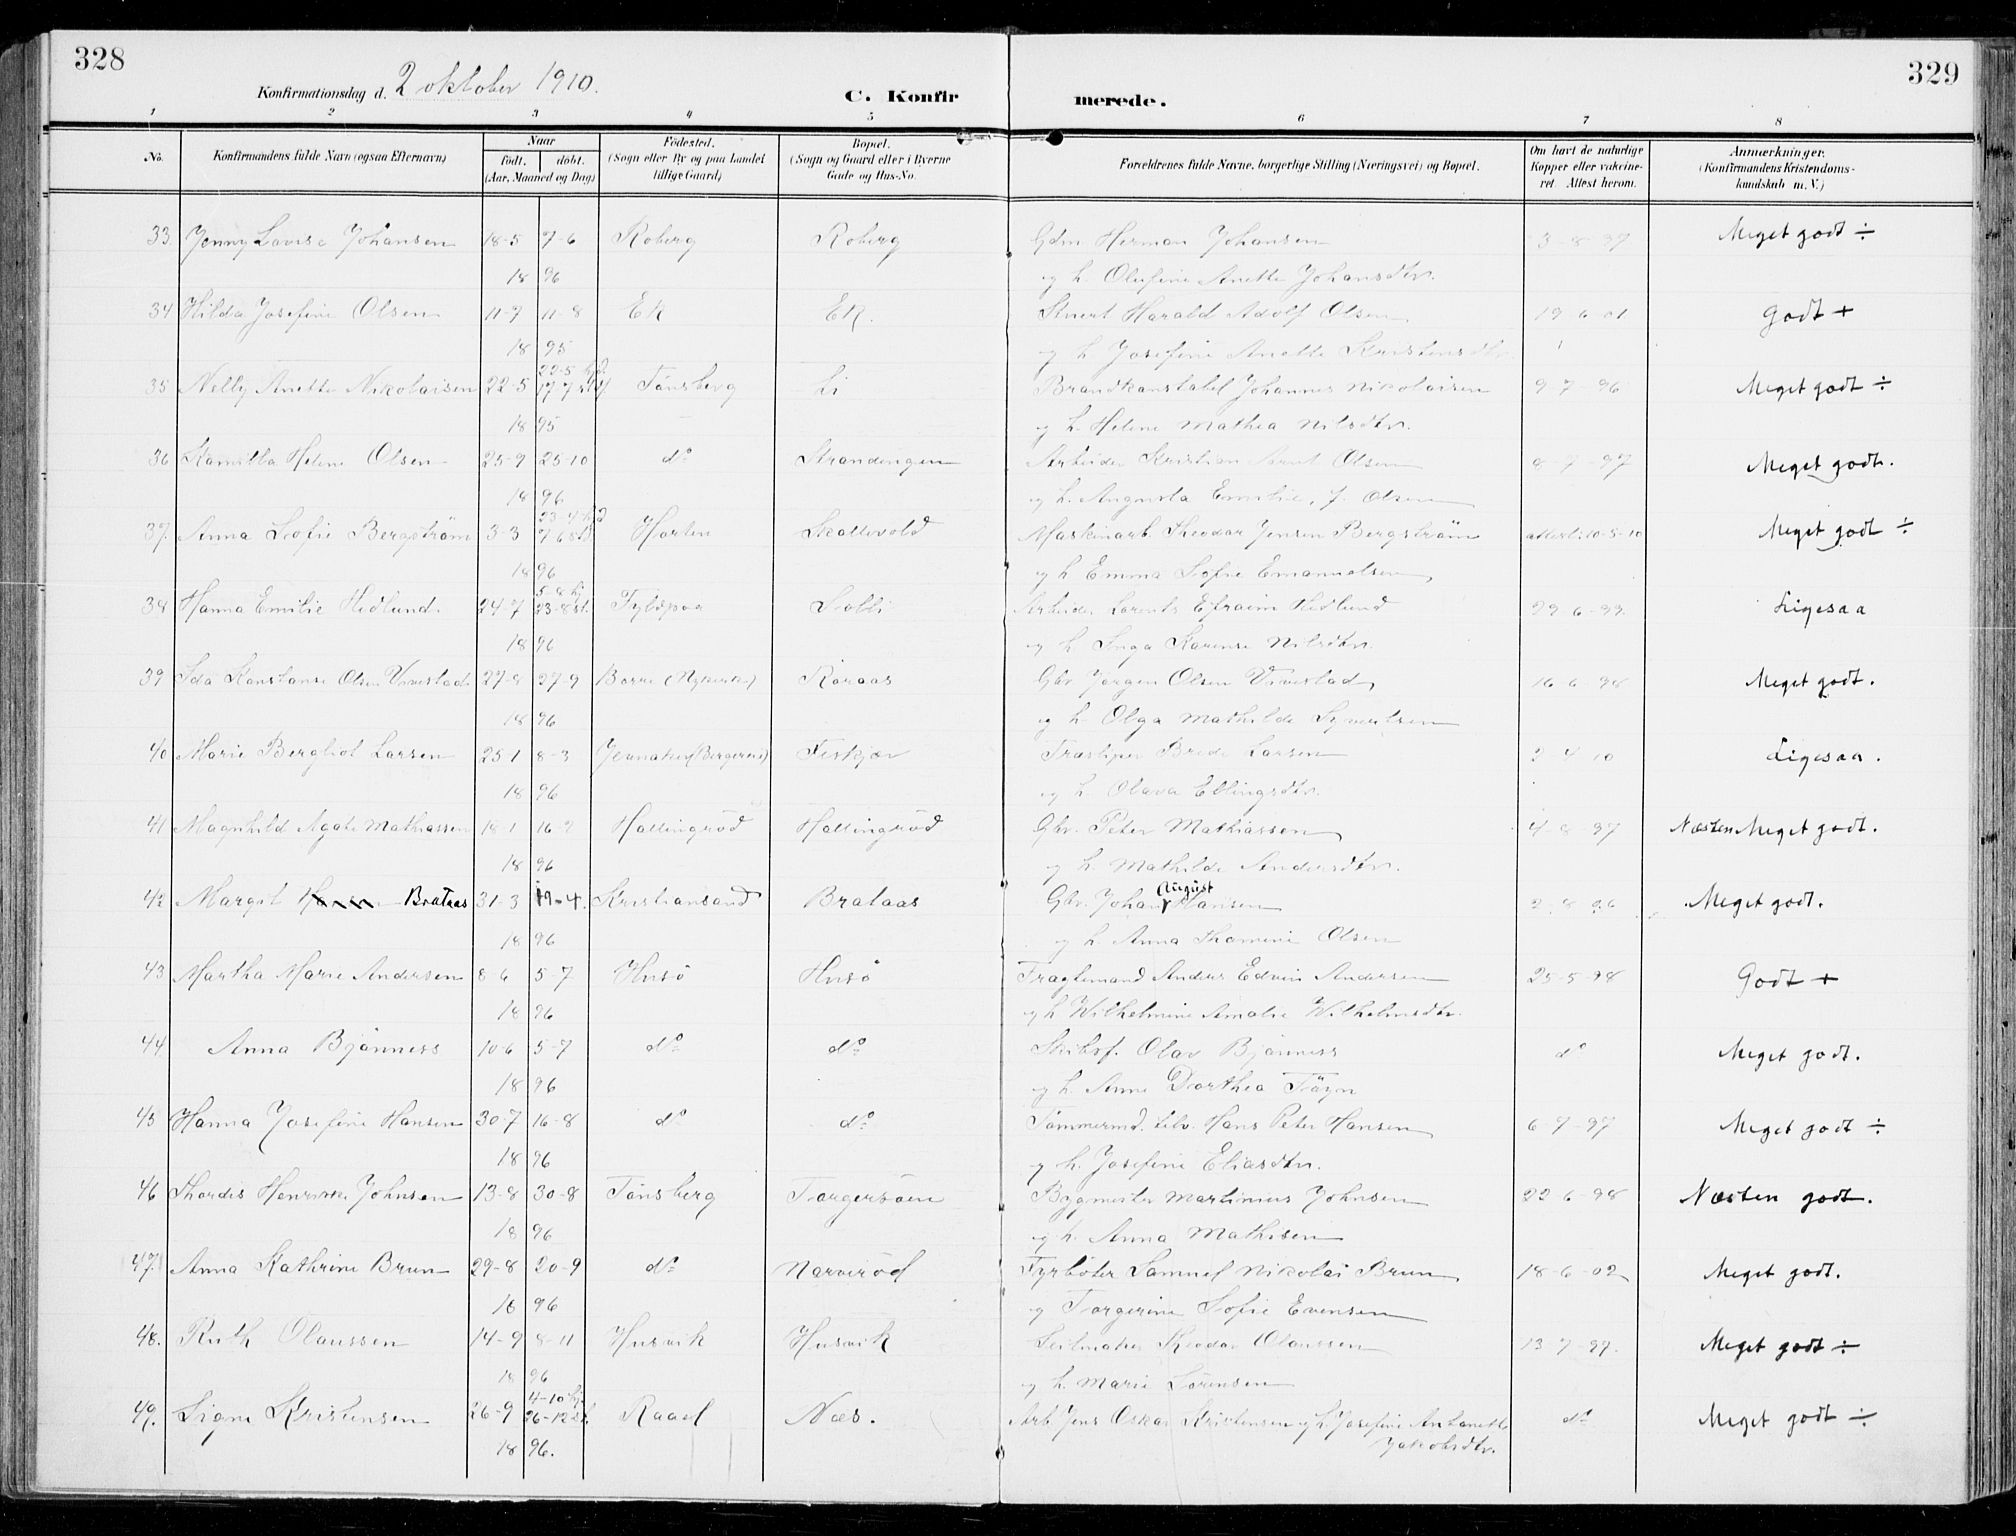 328
329
Konfirmationsdag d. 2 oktober 1910.
C. Konfirmerede.
1 2 3 4 5 6 7 8
No. Konfirmandens fulde Navn (ogsaa Efternavn) Naar født. døbt. (Aar, Maaned og Dag) Fødested. (Sogn eller By og paa Landet tillige Gaard) Bopæl. (Sogn og Gaard eller i Byerne Gade og Hus-No. Forældrenes fulde Navne, borgerlige Stilling (Næringsvei) og Bopæl. Om havt de naturlige Kopper eller vakcineret. Attest herom. Anmærkninger. (Konfirmandens Kristendomskundskab m. V.)
33. Jenny Lovise Johansen 18-5 7-6 Roberg Roberg Gdm. Herman Johansen 3-8-97 Meget godt ÷
18 96 og h. Olufine Anette Johansdtr.
34 Hilda Josefine Olsen 11-7 11-8 Ek Ek. Harald Adolf Olsen 19-6-01 Godt +
18 95 og h. Josefine Anette Kristensdtr.
22-5 hjd
35 Nelly Anette Nikolaisen 22-5 17-7 Tønsberg Li Brandkonstabel Johannes Nikolaisen 9-7-96 Meget godt ÷
18 95 og h. Helene Mathea Nilsdtr.
36 Kamilla Helene Olsen 25-9 25-10 do Strandengen Arbeider Kristian Arnt Olsen 8-7-97 Meget godt.
18 96 og h. Augusta Emilie, f. Olsen
23-4 hjd
37. Anna Sofie Bergstrøm 3-3 7-6 st. Horten Skallevold Maskinarb. Theodor Jensen Bergstrøm attest: 10-5-10 Meget godt ÷
18 96 og h. Emma Sofie Emanuelsen
5-8 hj.
38 Hanna Emilie Hedlund. 24-7 23-8 st. Tyldpaa Solli Arbeider Lorents Efraim Hedlund 29-6-99 Ligesaa
18 96 og h. Inga Karense Nilsdtr.
39 Ida Konstanse Olsen Vivestad 27-8 27-9 Borre (Nykirke) Røraas Gbr. Jørgen Olsen Vivestad 16-6-98 Meget godt.
18 96 og h. Olga Mathilde Syvertsen
40 Marie Bergliot Larsen 25-1 8-3 Feskjær Brede Larsen 2-4-10 Ligesaa.
18 96 og h. Olava Ellingsdtr.
41 Magnhild Agate Mathiassen 18-1 16-2 Hallingrød Hallingrød Gbr. Peter Mathiassen 4-8-97 Næsten Meget godt.
18 96 og h. Mathilde Andersdtr.
42 Margit Hansen Brataas 31-3 19-4. Kristiansand Brataas Gbr. Johan August Hansen 2-8-96 Meget godt.
18 96 og h. Anna Thomine Olsen
43 Martha Marie Andersen 8-6 5-7 Husø Husø Fraglemand Anders Edvin Andersen 25-5-98 Godt +
18 96 og h. Wilhelmine Amalie Wilhelmsdtr.
44 Anna Bjønness 10-6 5-7 do do Skibsf. Olav Bjønness do Meget godt.
18 96 og h. Anne Dorthea Tøgn
45 Hanna Josefine Hansen 30-7 16-8 do do Tømmermd. Hans Peter Hansen 6-7-97 Meget godt ÷
18 96 og h. Josefine Eliasdtr.
46 Thordis Henrikke Johnsen 13-8 30-8 Tønsberg Torgersøen Bygmester Martinius Johnsen 22-6-98 Næsten godt.
18 96 og h. Anna Mathisen
47. Anna Kathrine Brun 29-8 20-9 do Narverød Fyrbøter Samuel Nikolai Brun 18-6-02 Meget godt.
18 96 og Torgerine Sofie Evensen
48. Ruth Olaussen 14-9 8-11 Husvik Husvik Seilmaker Theodor Olaussen 13-7-97. Meget godt ÷
18 96 og h. Marie Sørensen
4-10 hj.
49. Signe Kristensen 26-9 26-12 st. Raael Næs. Arb. Jens Oskar Kristensen og h. Josefine Antonette do Meget godt ÷
18 96. Jakobsdtr.